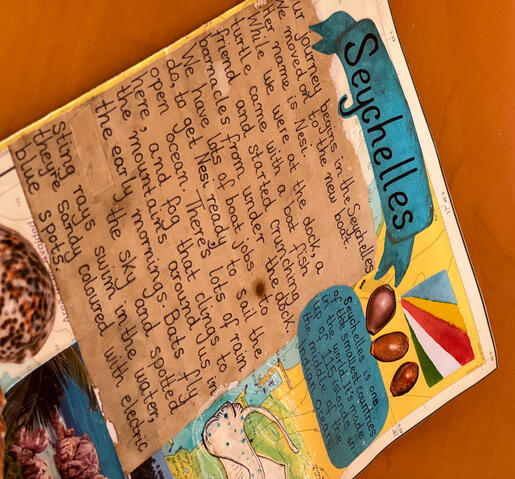 Seychelles
ur journey begins in the Seychelles
We moved on to the new boat.
Her name is Nesi.
While we were at the dock, a
turtle came with a bat fish
friend and started crunching
barnacles from under the dock.
We have lots of boat jobs to
do, to get Nesi ready to sail the
open ocean. There's lots of rain
here, and fog that clings to
the mountains around us in
the early mornings. Bats fly
in the sky and spotted
sting rays swim in the water,
they're sandy coloured with electric
blue spots.
Seychelles is one
of the smallest countries
in the world. It's made
up of 115 islands in
the middle of the
ocean.